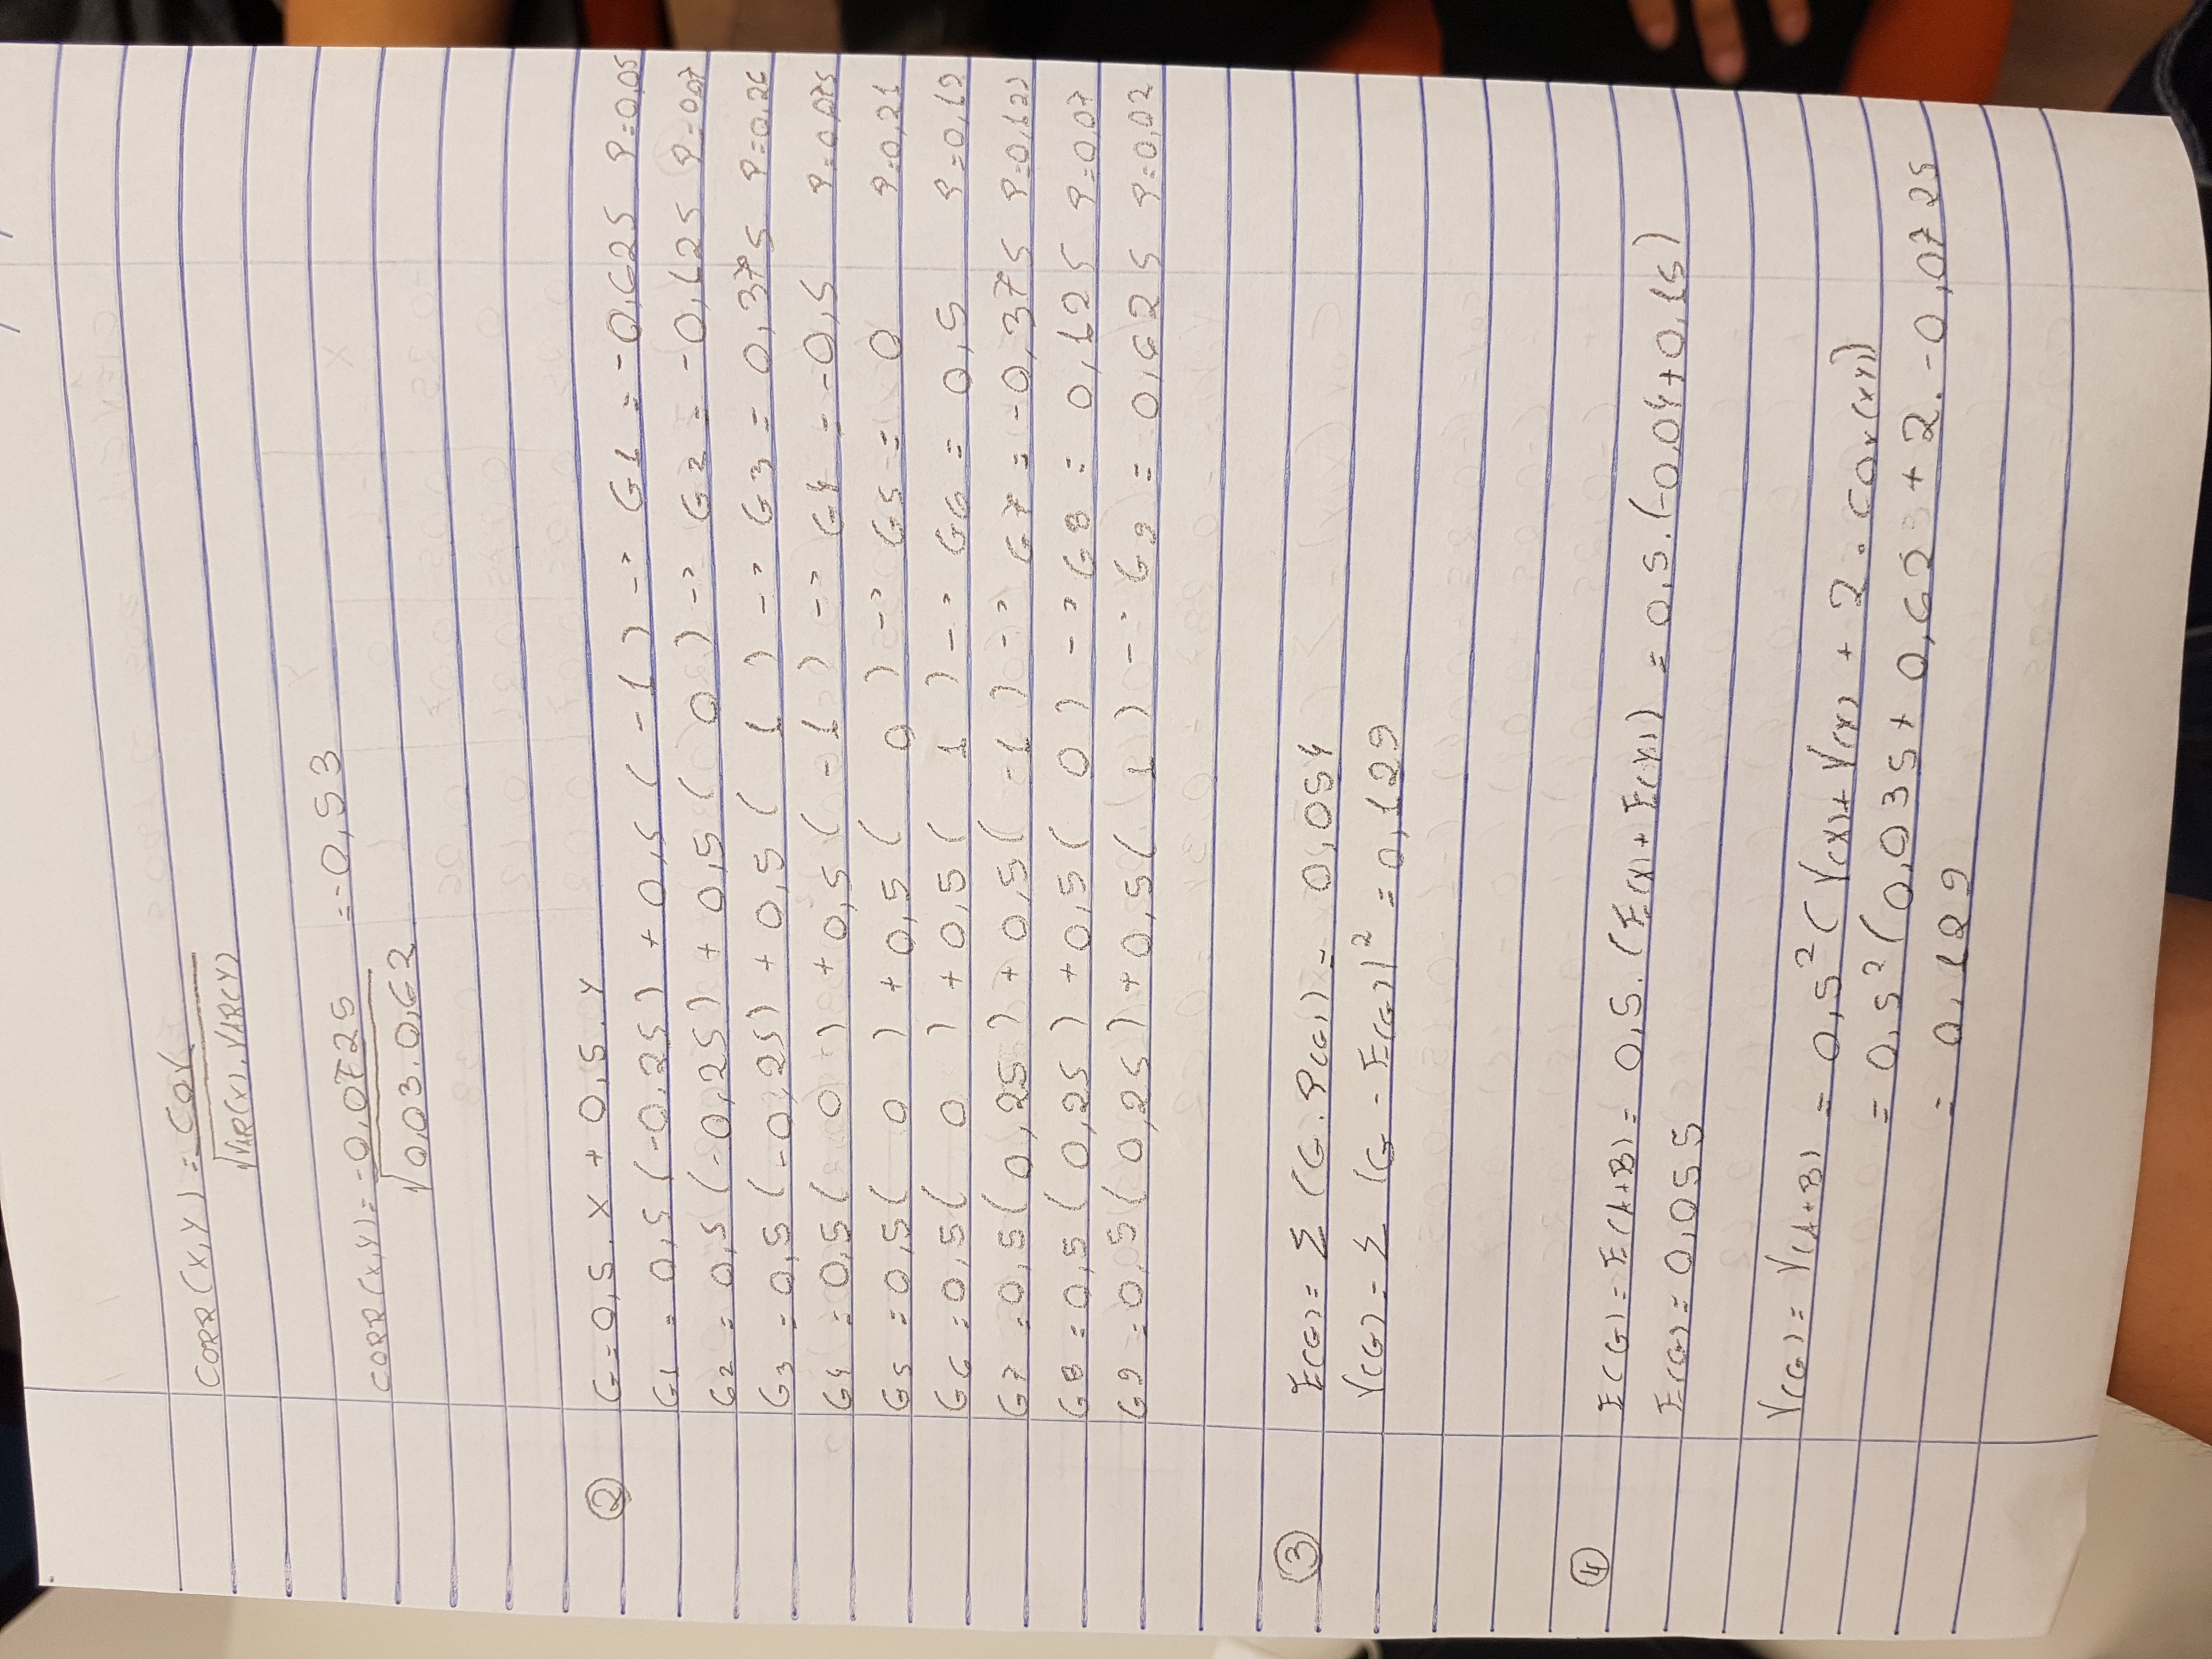 CORR(X,Y) = COV
√VAR(X).VAR(Y)
CORR(X,Y) = -0,0725 = -0,53
√0,03.0,62
② G = 0,5.X + 0,5.Y
G1 = 0,5(-0,25) + 0,5(-1) -> G1 = -0,625 P=0,05
G2 = 0,5(-0,25) + 0,5(0) -> G2 = -0,125 P=0,07
G3 = 0,5(-0,25) + 0,5(1) -> G3 = 0,375 P=0,26
G4 = 0,5(0) + 0,5(-1) -> G4 = -0,5 P=0,075
G5 = 0,5(0) + 0,5(0) -> G5 = 0 P=0,21
G6 = 0,5(0) + 0,5(1) -> G6 = 0,5 P=0,12
G7 = 0,5(0,25) + 0,5(-1) -> G7 = -0,375
G8 = 0,5(0,25) + 0,5(0) -> G8 = 0,125 P=0,07
G9 = 0,5(0,25) + 0,5(1) -> G9 = 0,625 P=0,02
③ E(G) = Σ (G.P(G)) = 0,054
V(G) = Σ (G - E(G))² = 0,129
④ E(G) = E(A+B) = 0,5.(E(X) + E(Y)) = 0,5.(-0,04+0,15)
E(G) = 0,055
V(G) = V(A+B) = 0,5² (V(X) + V(Y) + 2.COV(XY))
= 0,5² (0,035 + 0,62 + 2.-0,0725
= 0,129